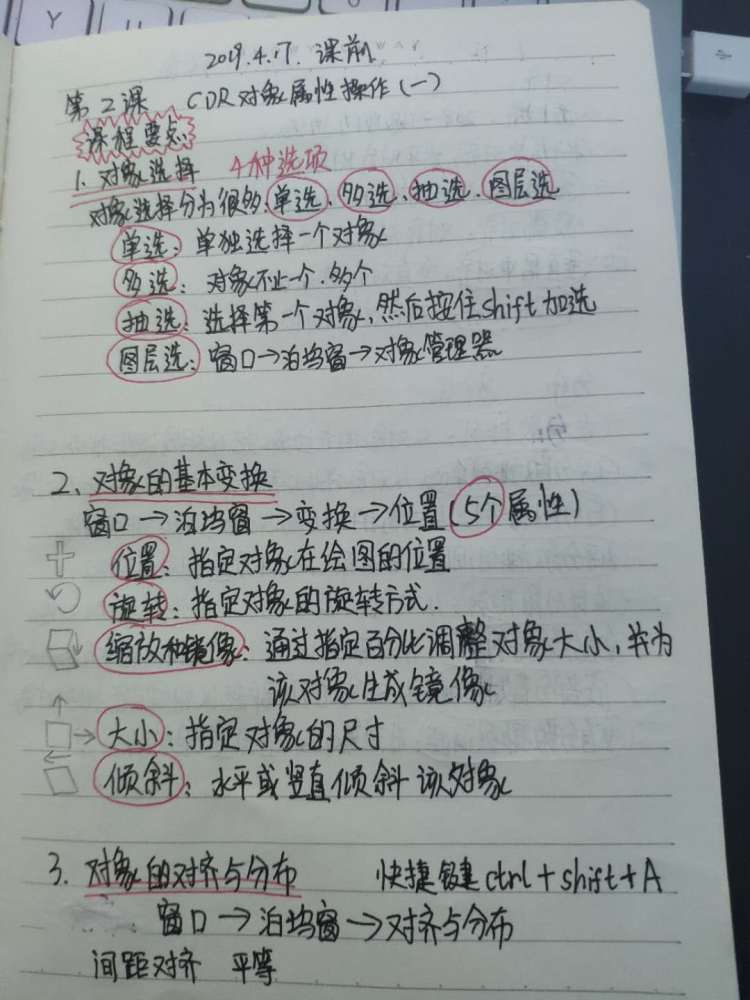 2019.4.17. 课前
第2课 CDR对象属性操作(一)
课程要点
1. 对象选择 4种选项
对象选择分为很多:单选、多选、抽选、图层选
单选:单独选择一个对象
多选:对象不止一个.多个
抽选:选择第一个对象,然后按住shift加选
图层选:窗口→泊坞窗→对象管理器
2、对象的基本变换
窗口→泊坞窗→变换→位置(5个属性)
位置:指定对象在绘图的位置
旋转:指定对象的旋转方式.
缩放和镜像:通过指定百分比调整对象大小,并为
该对象生成镜像
大小:指定对象的尺寸
倾斜:水平或竖直倾斜该对象
3. 对象的对齐与分布 快捷键ctrl+shift+A
窗口→泊坞窗→对齐与分布
间距对齐 平等